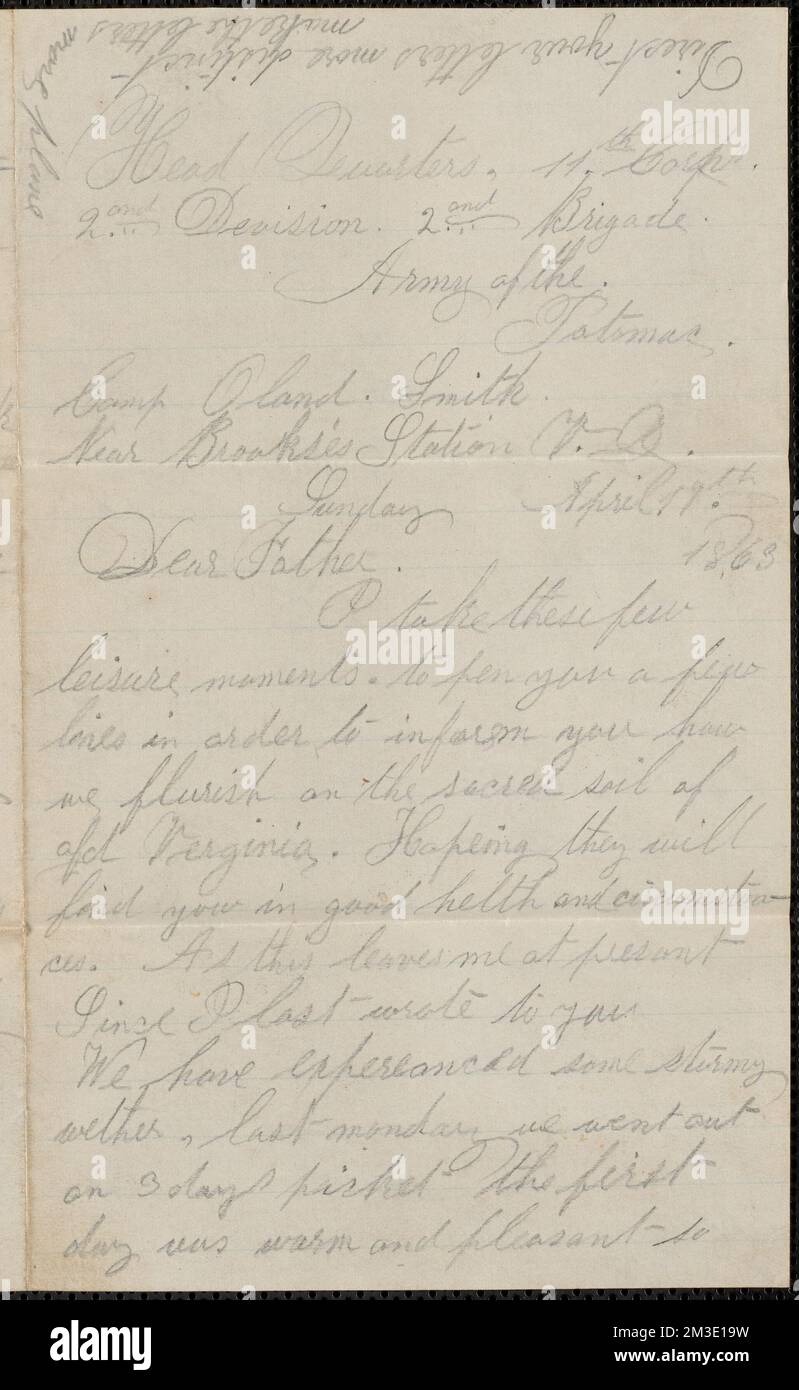 Direct your letters more distinct
make the letters
more plane
Head Quarters. 11.th Corps.
2.and Devision. 2.and Brigade.
Army of the.
Potomac.
Camp Oland. Smith.
Near Brooks'es Station V. a.
Sunday April 19.th
1863
Dear Father.
I take these few
leisure moments. to pen you a few
lines in order to inform you how
we flurish on the sacred soil of
old Verginia. Hopeing they will
find you in good helth and circumstan
ces. As this leaves me at present
Since I last wrote to you
We have expereanced some stormy
wether, last monday we went out
on 3 days picket the first
day was warm and pleasant so
alamy
Image ID: 2M3E19W
www.alamy.com